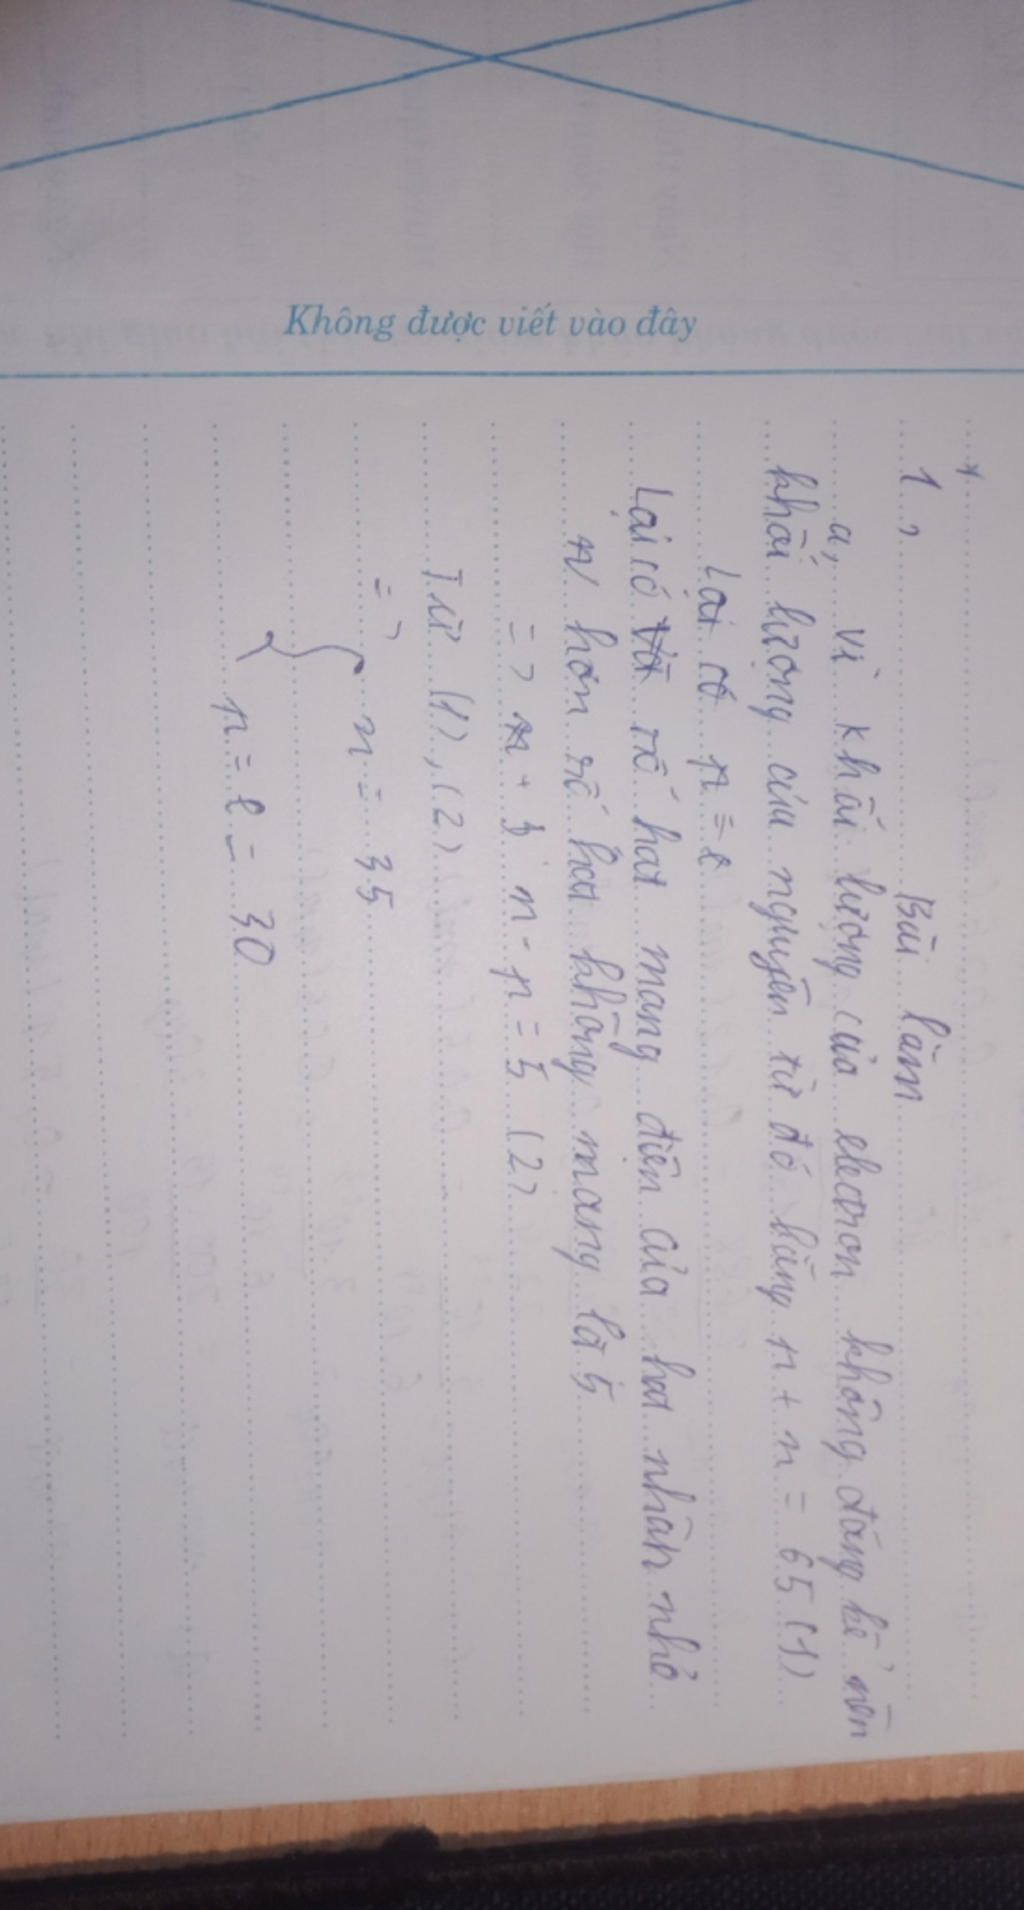 Không được viết vào đây
Bài làm
1,
a, Vì khối lượng của electron không đáng kể nên
khối lượng của nguyên tử đó bằng p + n = 65 (1)
Lại có p = e
Lại có số hạt mang điện của hạt nhân nhỏ
hơn số hạt không mang là 5
=> n - p = 5 (2)
Từ (1), (2)
=> { n = 35
p = e = 30